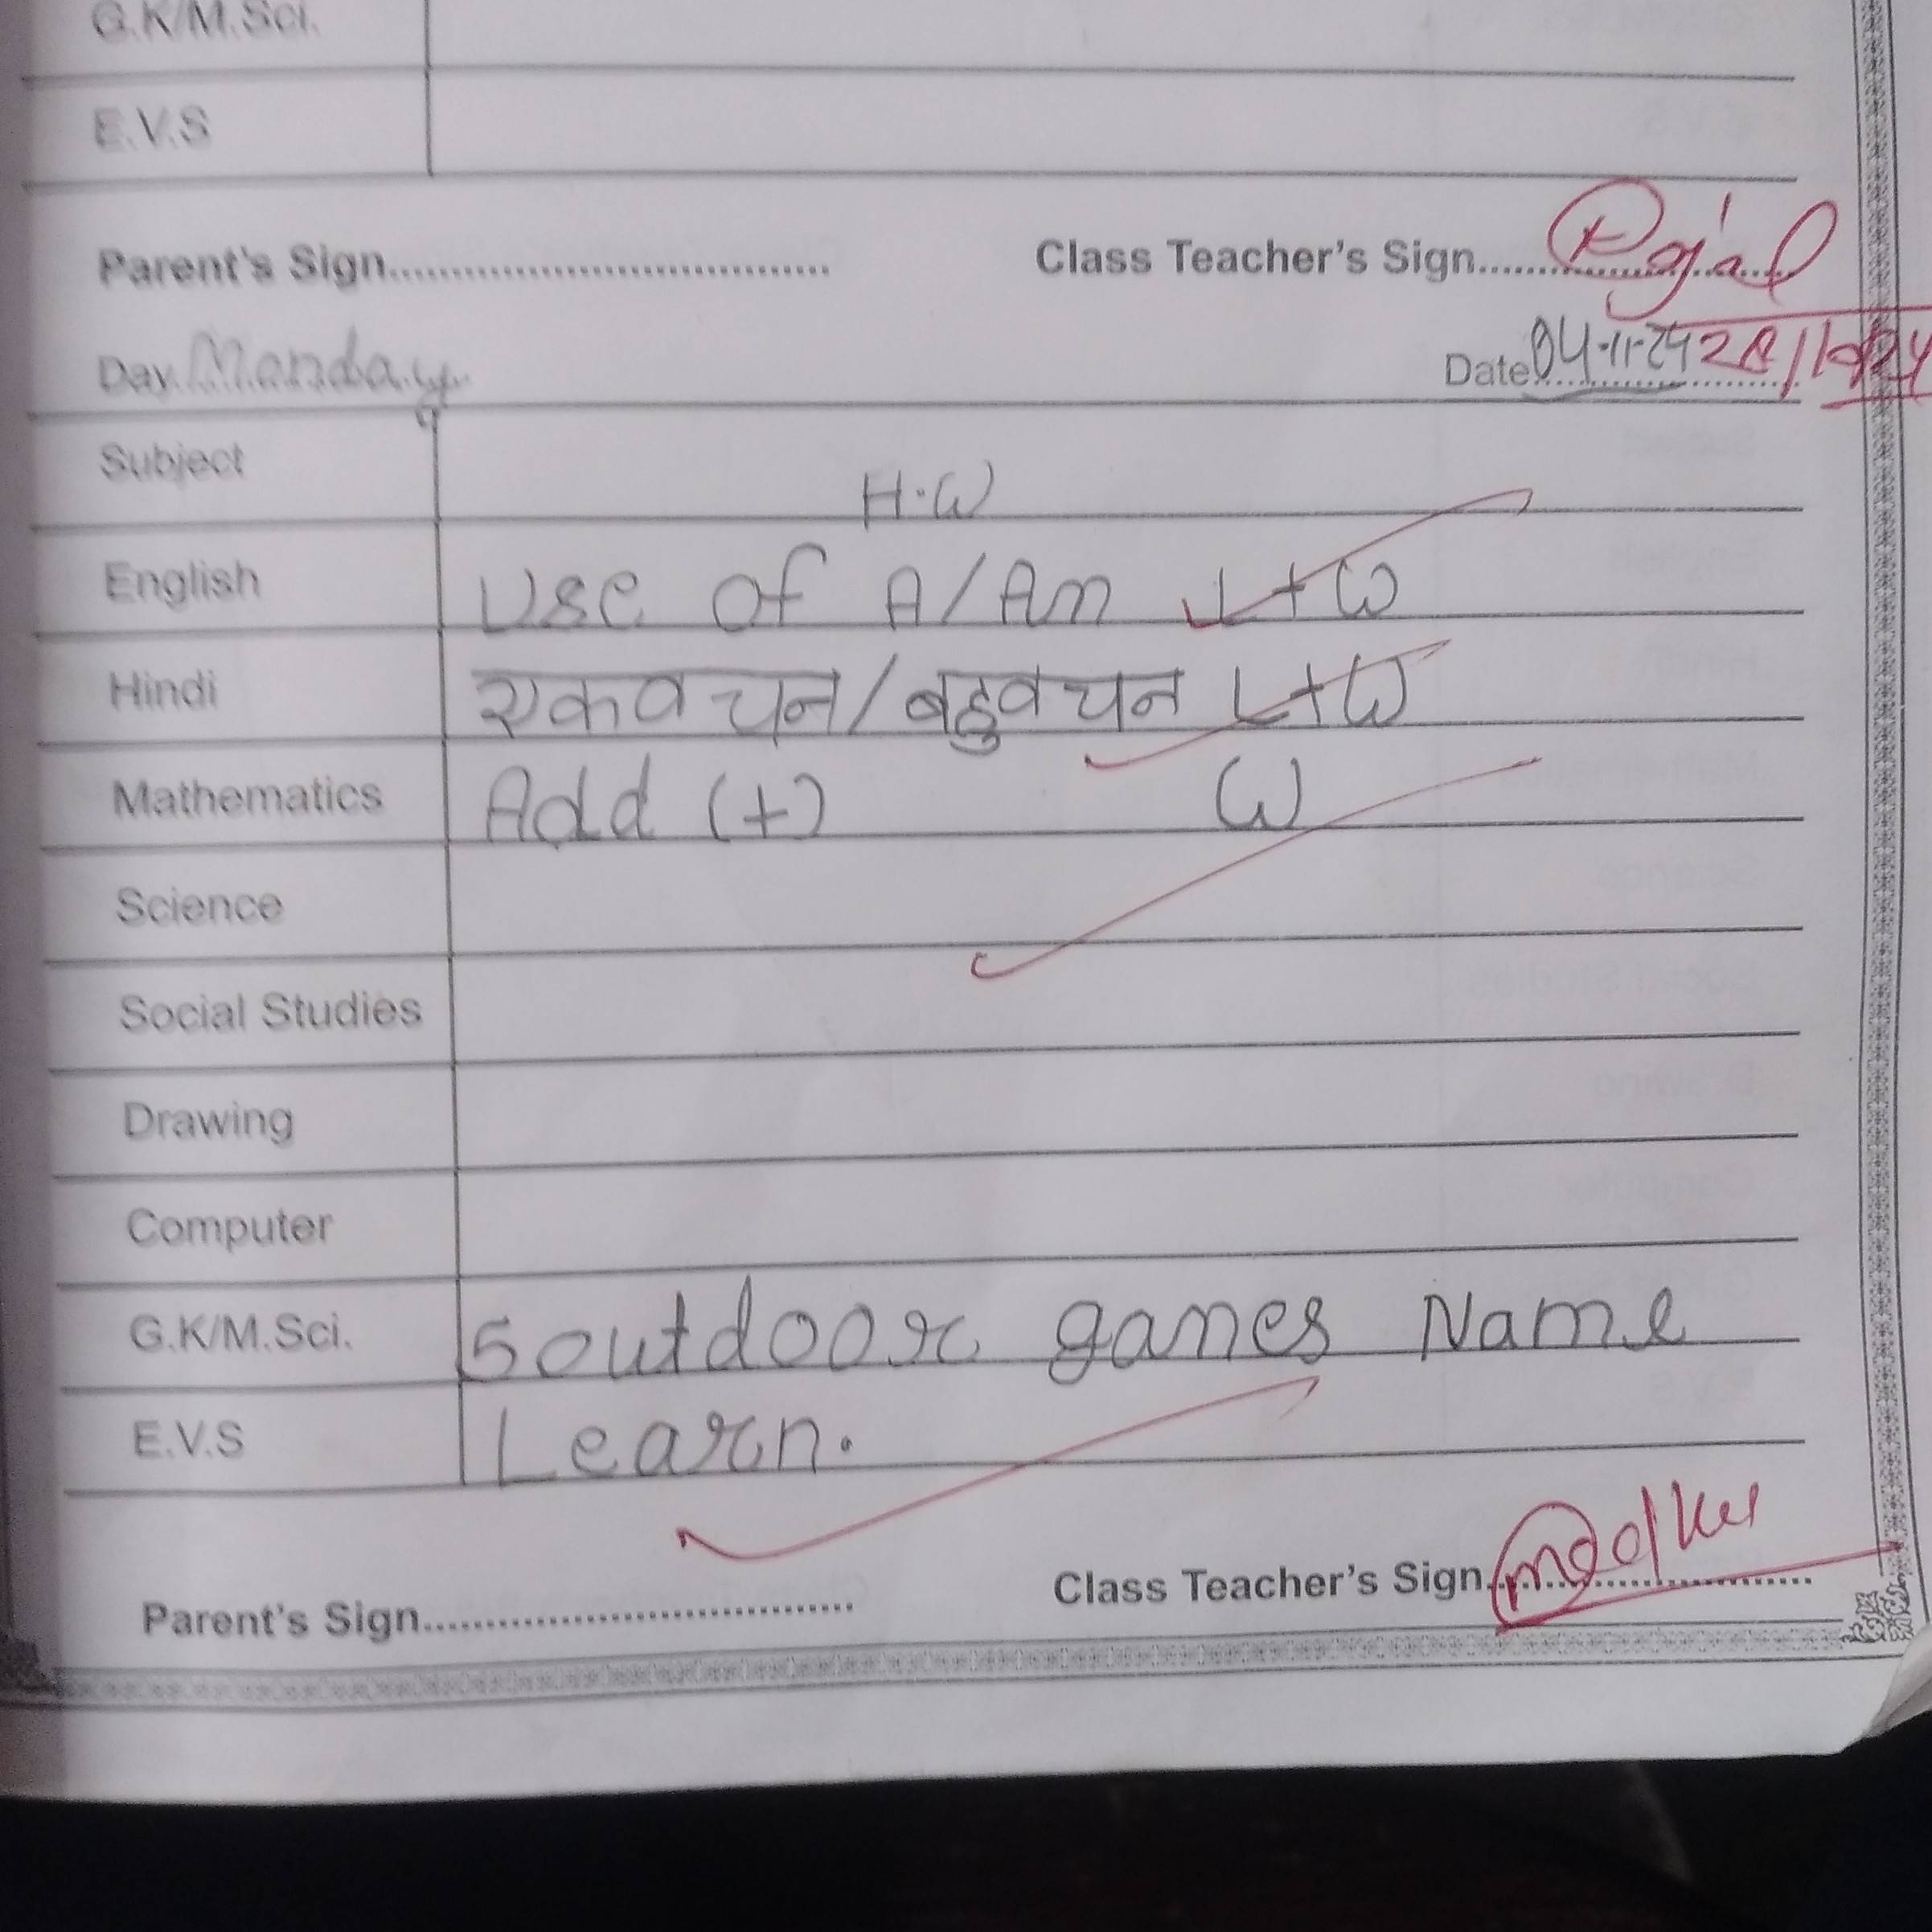 G.K/M.Sci.
E.V.S
Parent's Sign.................................... Class Teacher's Sign....................
Day Monday Date 04-11-24 28/10/24
Subject H.W
English Use of A/An L+W
Hindi एकवचन/बहुवचन L+W
Mathematics Add (+) W
Science
Social Studies
Drawing
Computer
G.K/M.Sci. 5 outdoor games Name
E.V.S Learn.
Parent's Sign.................................... Class Teacher's Sign....................